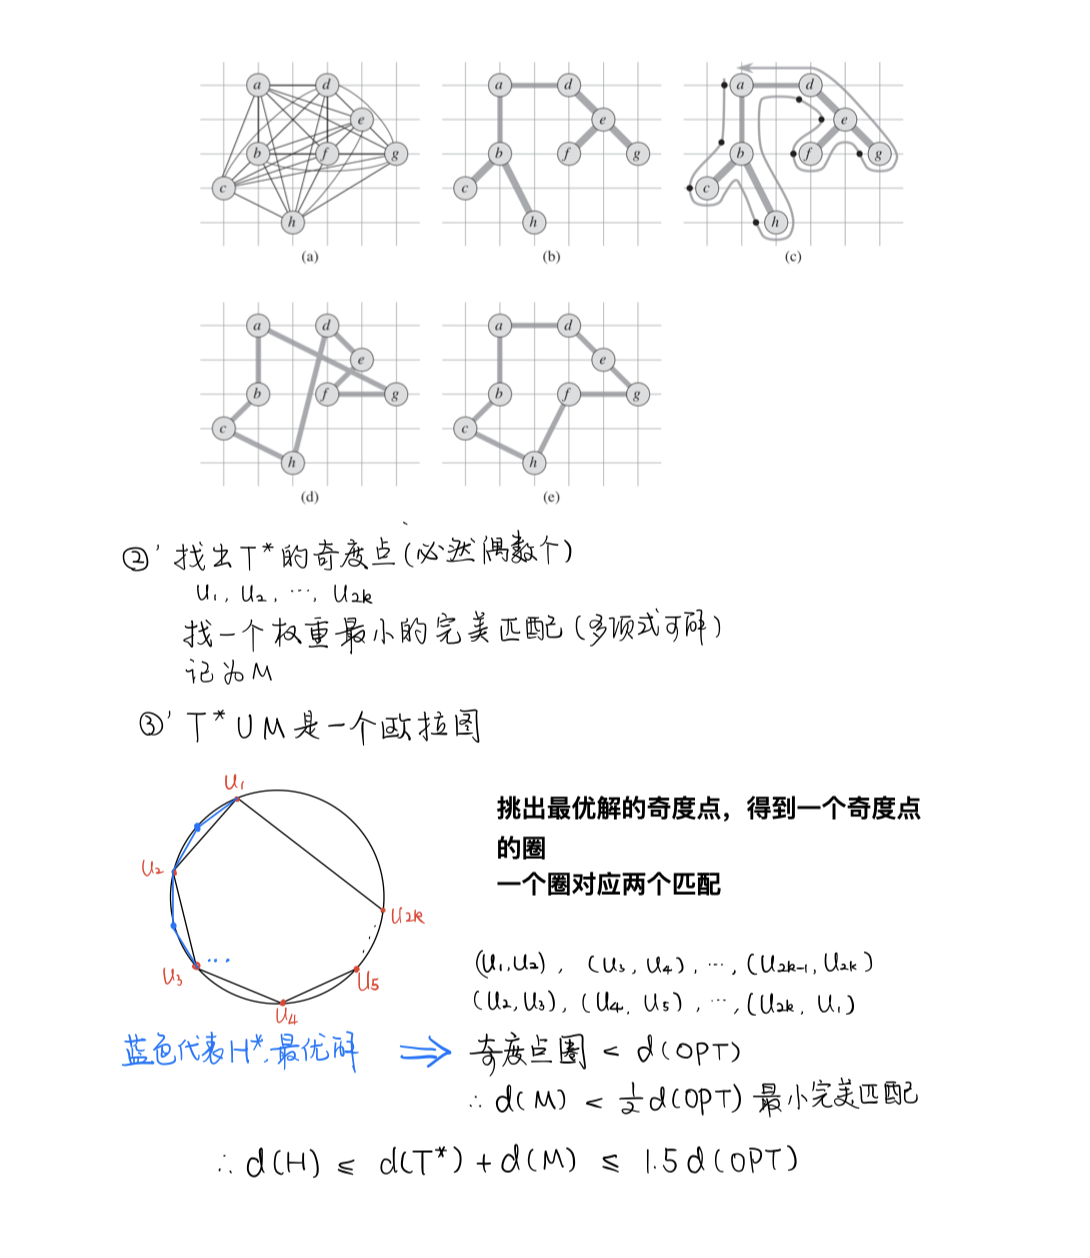 a d e b f g c h
(a)
a d e b f g c h
(b)
a d e b f g c h
(c)
a d e b f g c h
(d)
a d e b f g c h
(e)
②' 找出T*的奇度点(必然偶数个)
u₁, u₂, ..., u₂ₖ
找一个权重最小的完美匹配(多项式可解)
记为M
③' T* ∪ M 是一个欧拉图
u₁
u₂
u₃
...
u₄
u₅
u₂ₖ
挑出最优解的奇度点，得到一个奇度点
的圈
一个圈对应两个匹配
(u₁,u₂), (u₃,u₄), ..., (u₂ₖ₋₁,u₂ₖ)
(u₂,u₃), (u₄,u₅), ..., (u₂ₖ,u₁)
蓝色代表H*,最优解 ⇒ 奇度点圈 < d(OPT)
∴ d(M) < ½d(OPT) 最小完美匹配
∴ d(H) ≤ d(T*) + d(M) ≤ 1.5 d(OPT)